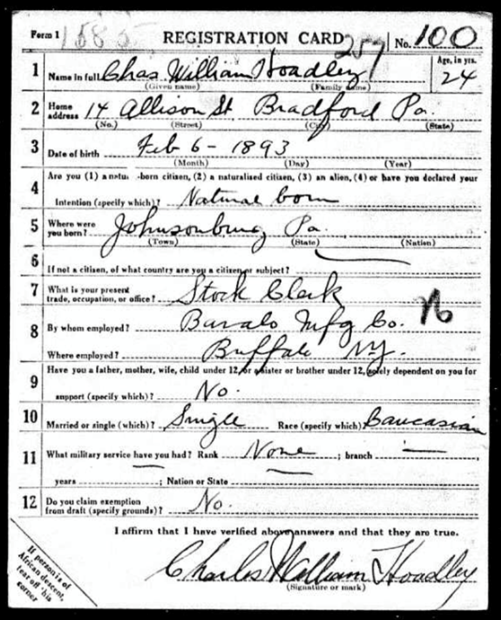 Form 1 1585 REGISTRATION CARD 257 No. 100
1 Name in full Chas. William Hoadley Age, in yrs. 24
(Given name) (Family name)
2 Home address 14 Allison St Bradford Pa.
(No.) (Street) (City) (State)
3 Date of birth Feb 6 - 1893
(Month) (Day) (Year)
4 Are you (1) a natural-born citizen, (2) a naturalized citizen, (3) an alien, (4) or have you declared your
intention (specify which)? Natural born
5 Where were you born? Johnsonburg Pa.
(Town) (State) (Nation)
6 If not a citizen, of what country are you a citizen or subject?
7 What is your present trade, occupation, or office? Stock Clerk
8 By whom employed? Mfg Co.
Where employed? Buffalo N.Y.
9 Have you a father, mother, wife, child under 12, or a sister or brother under 12, solely dependent on you for
support (specify which)? No.
10 Married or single (which)? Single Race (specify which) Caucasian
11 What military service have you had? Rank None ; branch —
years — ; Nation or State —
12 Do you claim exemption from draft (specify grounds)? No.
I affirm that I have verified above answers and that they are true.
Charles William Hoadley
(Signature or mark)
If person is of
African descent,
tear off this
corner